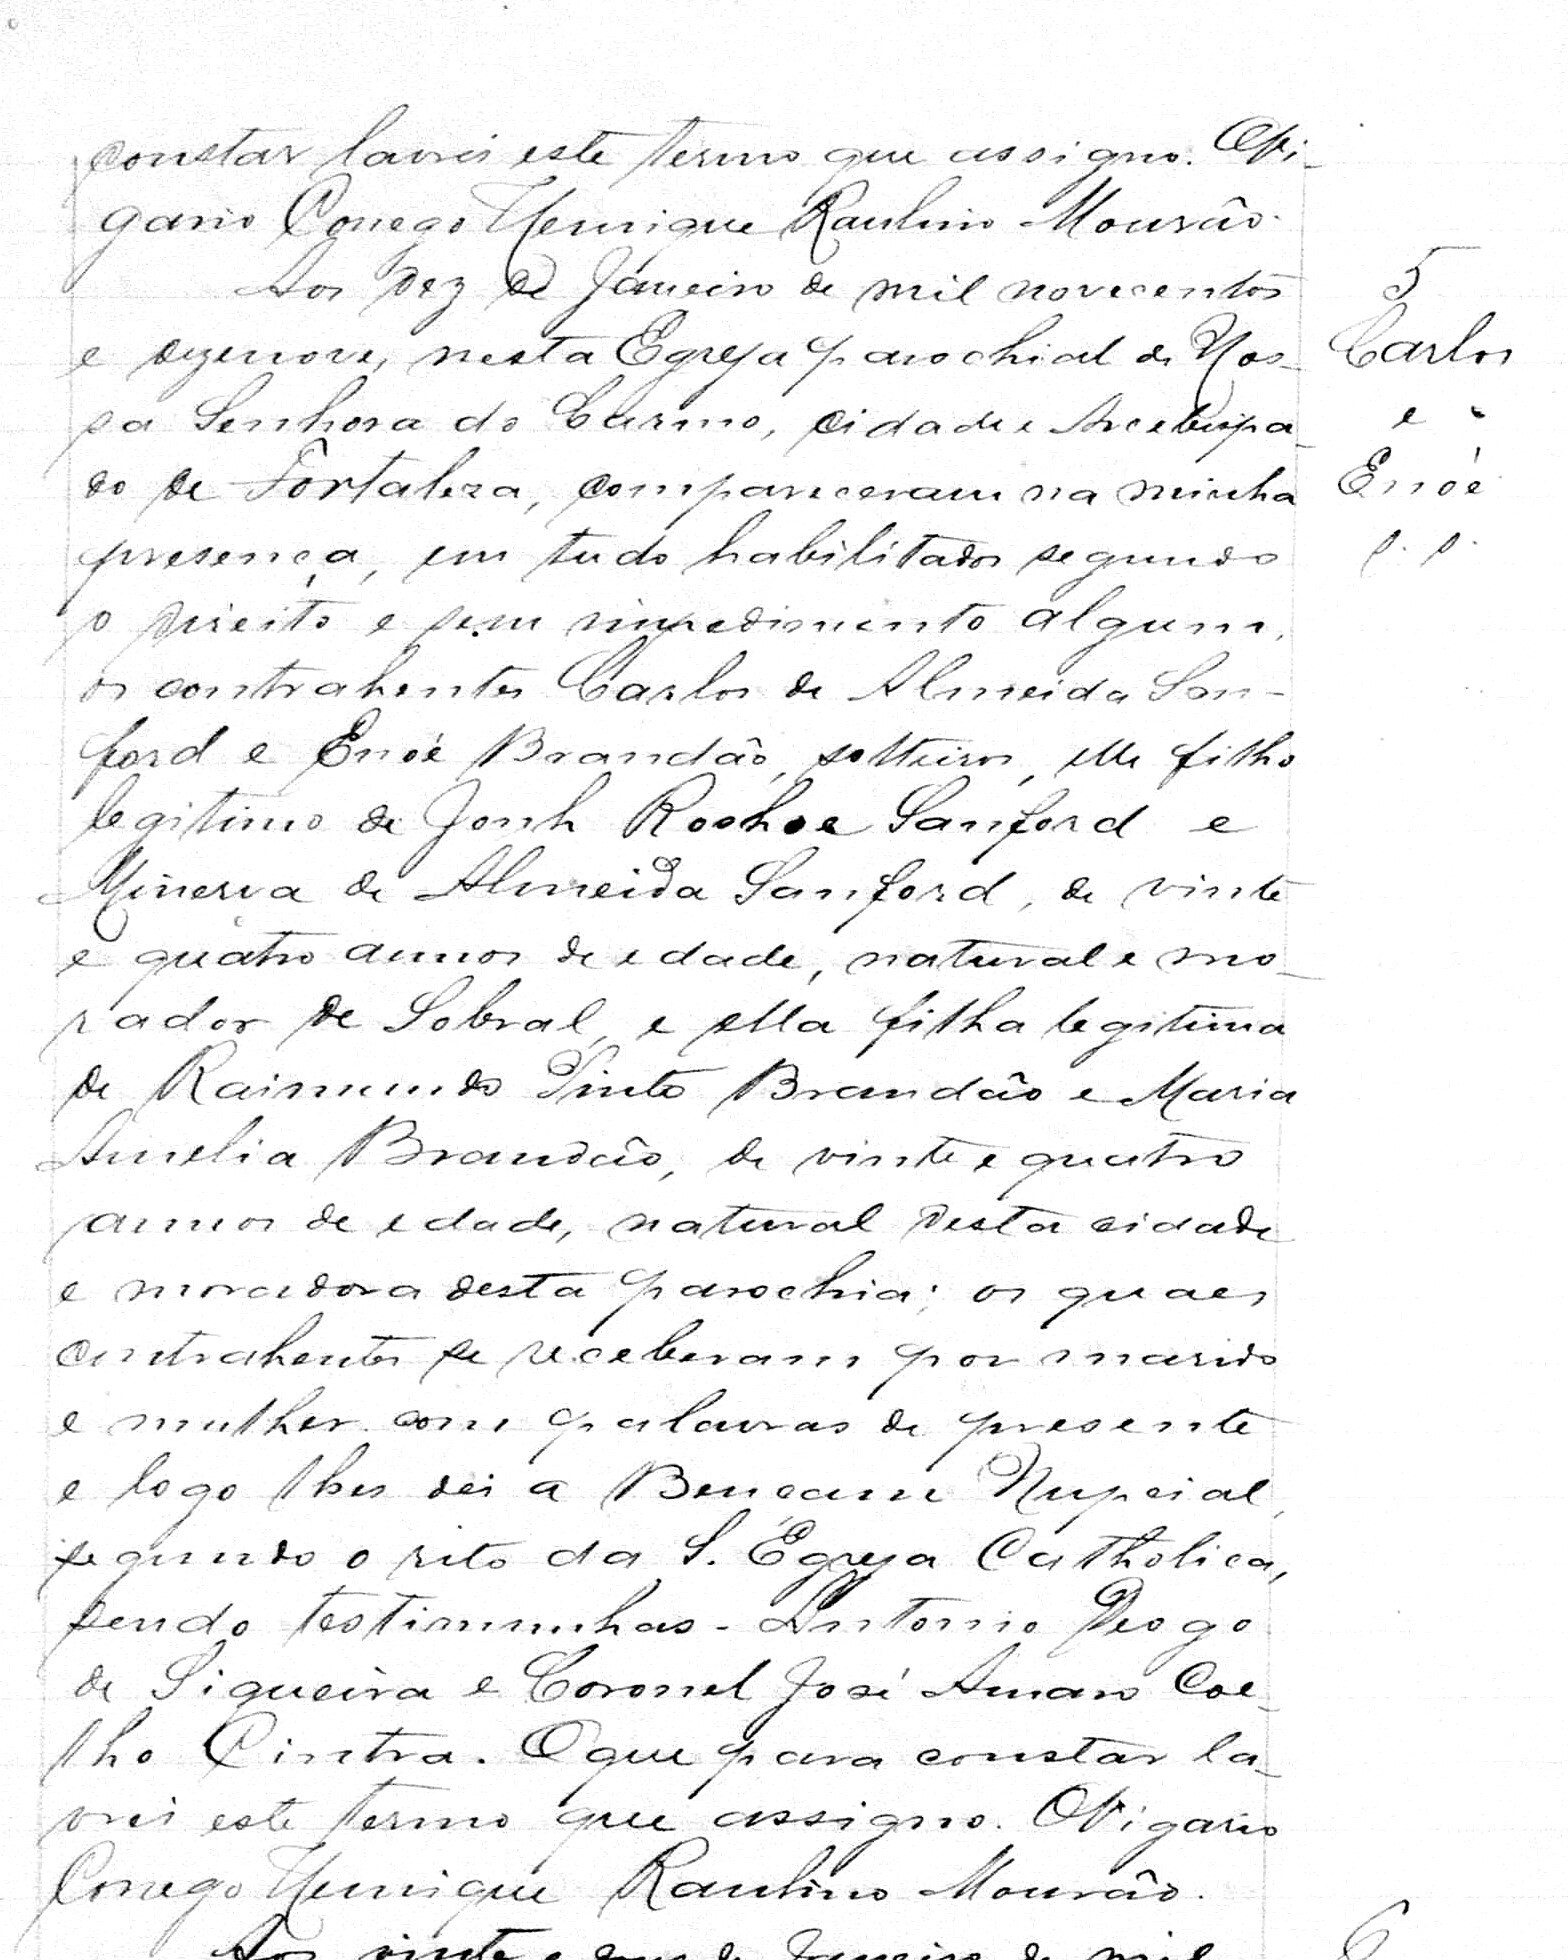 constar lavrei este termo que assigno. O Vi-
gario Conego Henrique Raulino Mourão.
Aos dez de Janeiro de mil novecentos
e dezenove, nesta Egreja parochial de Nos-
sa Senhora do Carmo, cidade e Arcebispa-
do de Fortaleza, compareceram na minha
presença, em tudo habilitados segundo
o direito e sem impedimento algum,
os contrahentes Carlos de Almeida San-
ford e Enoé Brandão, solteiros, elle filho
legitimo de Jonh Roohoe Sanford e
Minerva de Almeida Sanford, de vinte
e quatro annos de edade, natural e mo-
rador de Sobral, e ella filha legitima
de Raimundo Pinto Brandão e Maria
Amelia Brandão, de vinte e quatro
annos de edade, natural desta cidade
e moradora desta parochia; os quaes
contrahentes se receberam por marido
e mulher com palavras de presente
e logo lhes dei a Bençam Nupcial,
segundo o rito da S. Egreja Catholica,
sendo testimunhas - Antonio Diogo
de Siqueira e Coronel José Amaro Coe-
lho Cintra. O que para constar la-
vrei este termo que assigno. O Vigario
Conego Henrique Raulino Mourão.
Aos vinte e de Janeiro de mil
5
Carlos
e
Enoé
s. s.
6